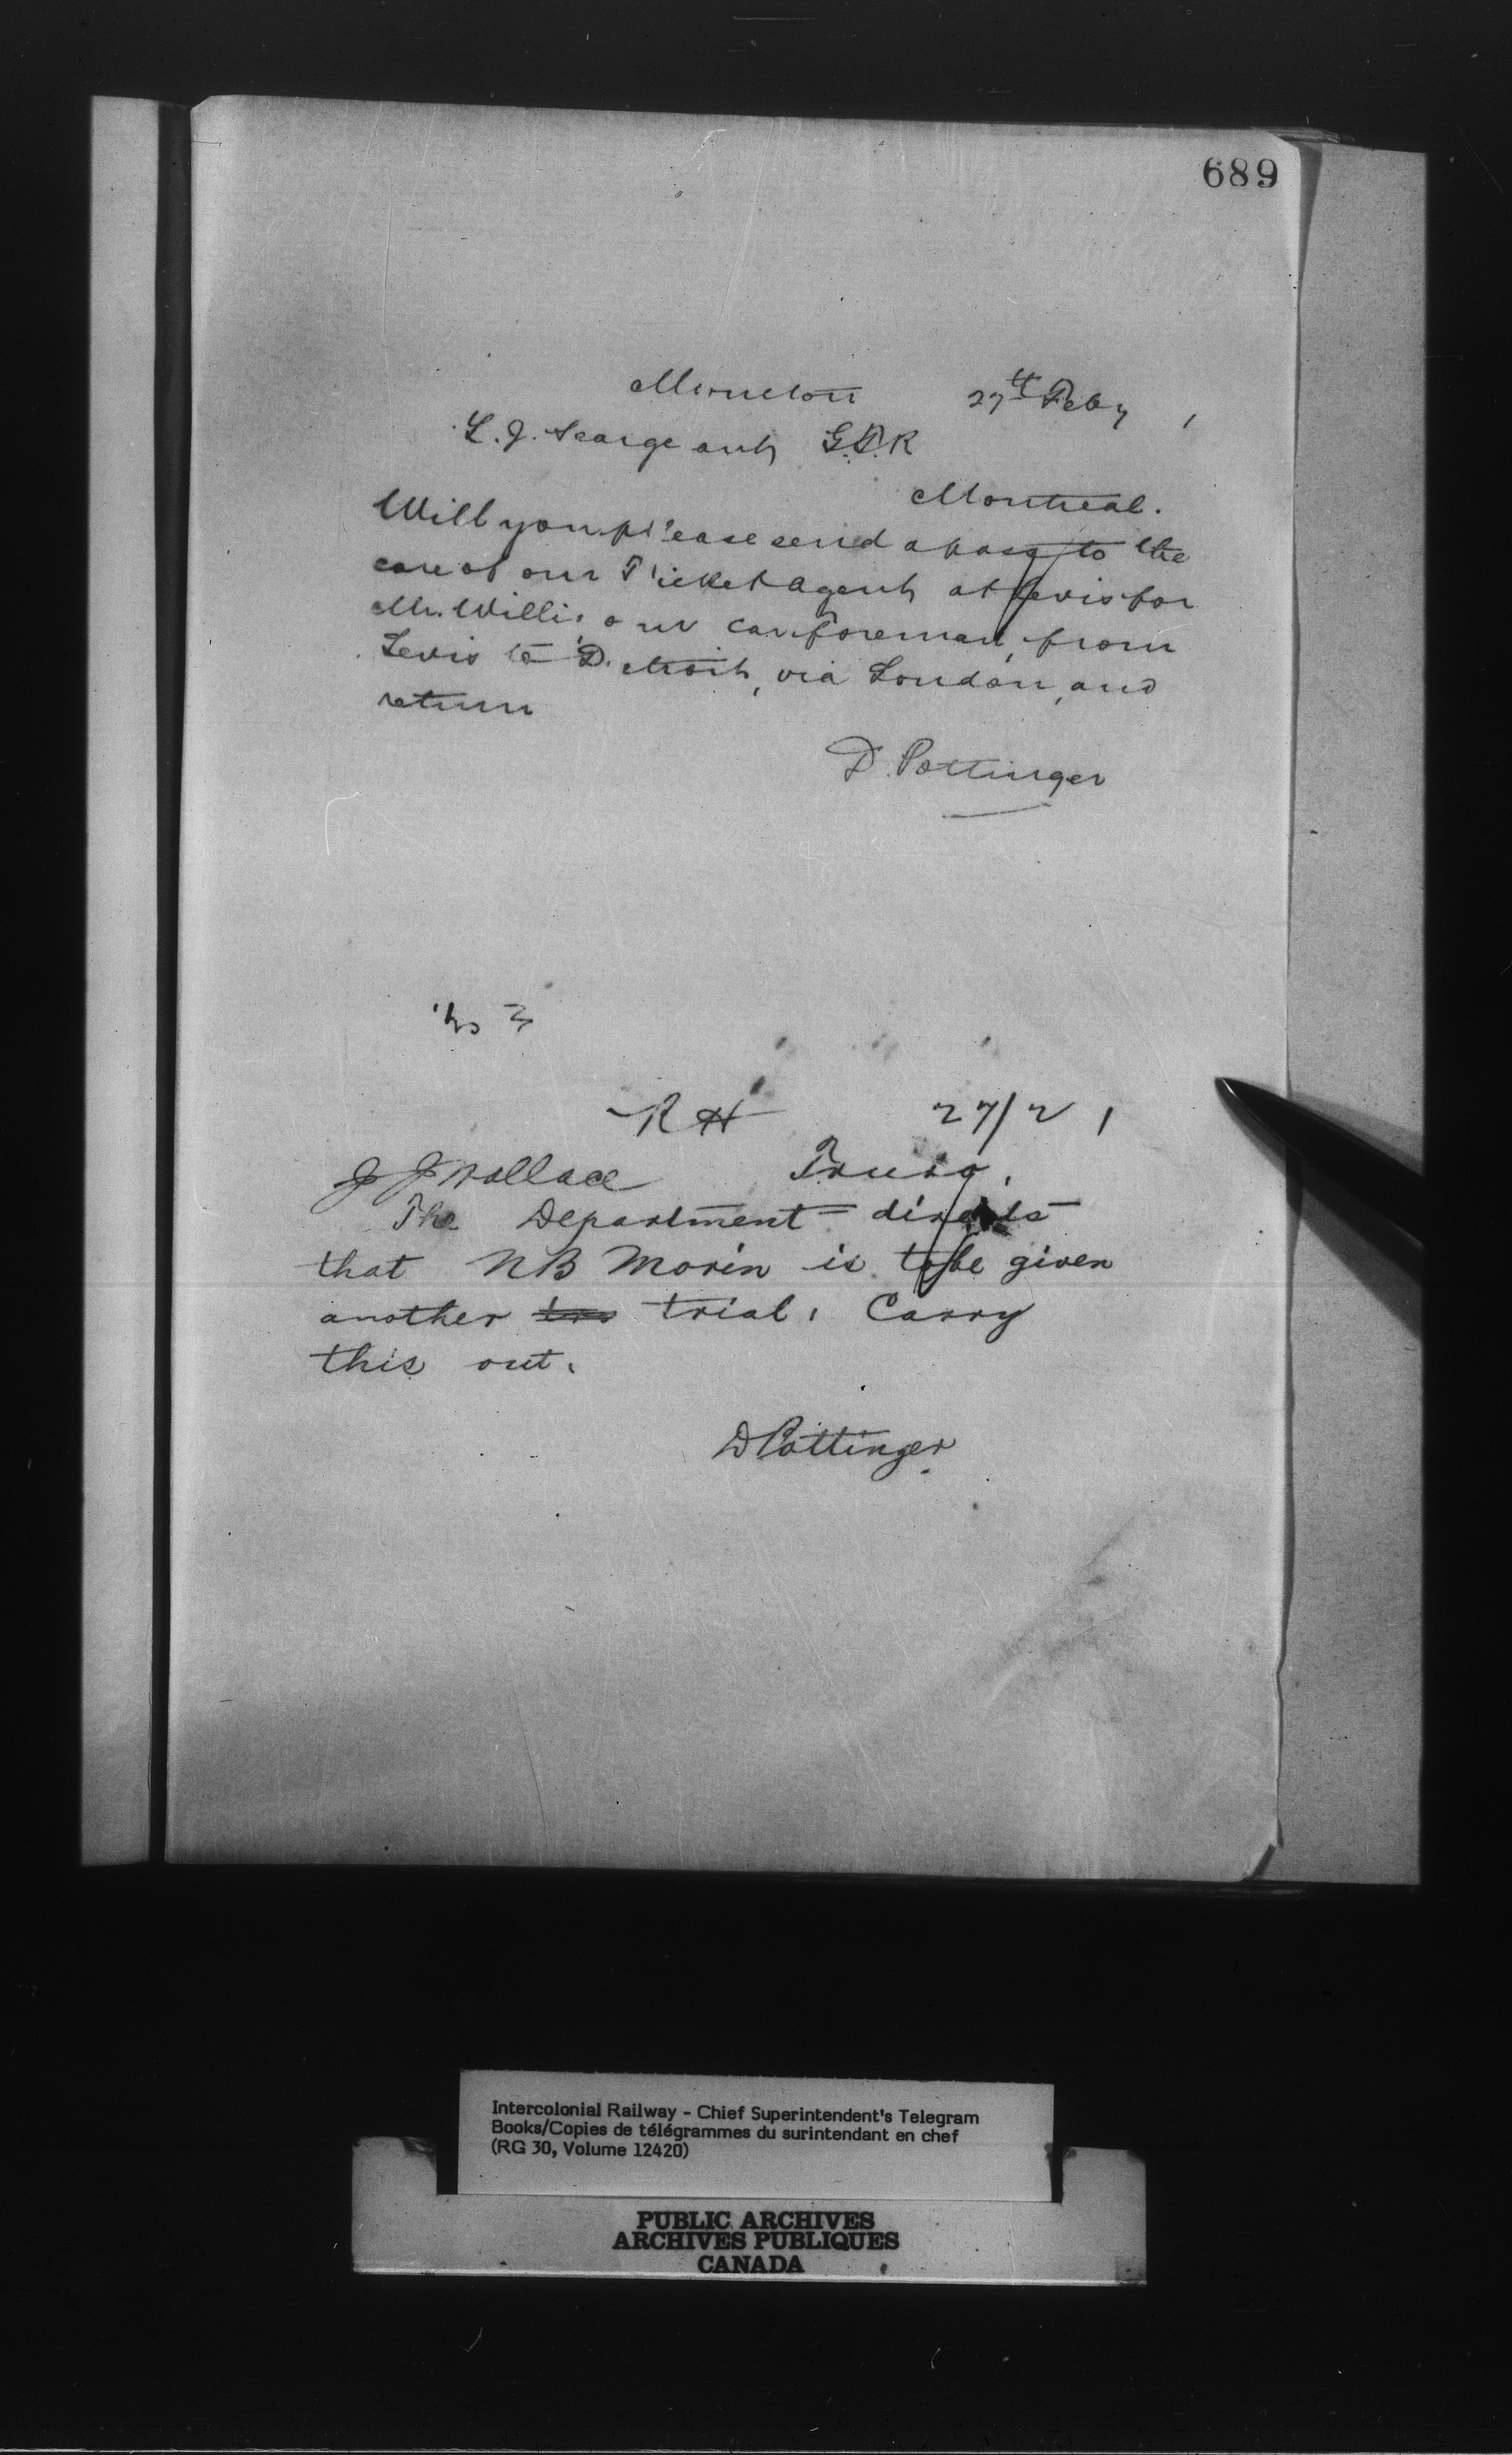 689
Moncton 27th Feby 1
L. J. Seargeant G.T.R
Montreal.
Will you please send a pass to the
care of our Ticket Agent at Levis for
Mr. Willis our car foreman, from
Levis to Detroit, via London, and
return
D. Pottinger
RH 27/2 1
J J Wallace Truro.
The Department directs
that NB Morin is to be given
another trial. Carry
this out.
D Pottinger
Intercolonial Railway - Chief Superintendent's Telegram
Books/Copies de télégrammes du surintendant en chef
(RG 30, Volume 12420)
PUBLIC ARCHIVES
ARCHIVES PUBLIQUES
CANADA